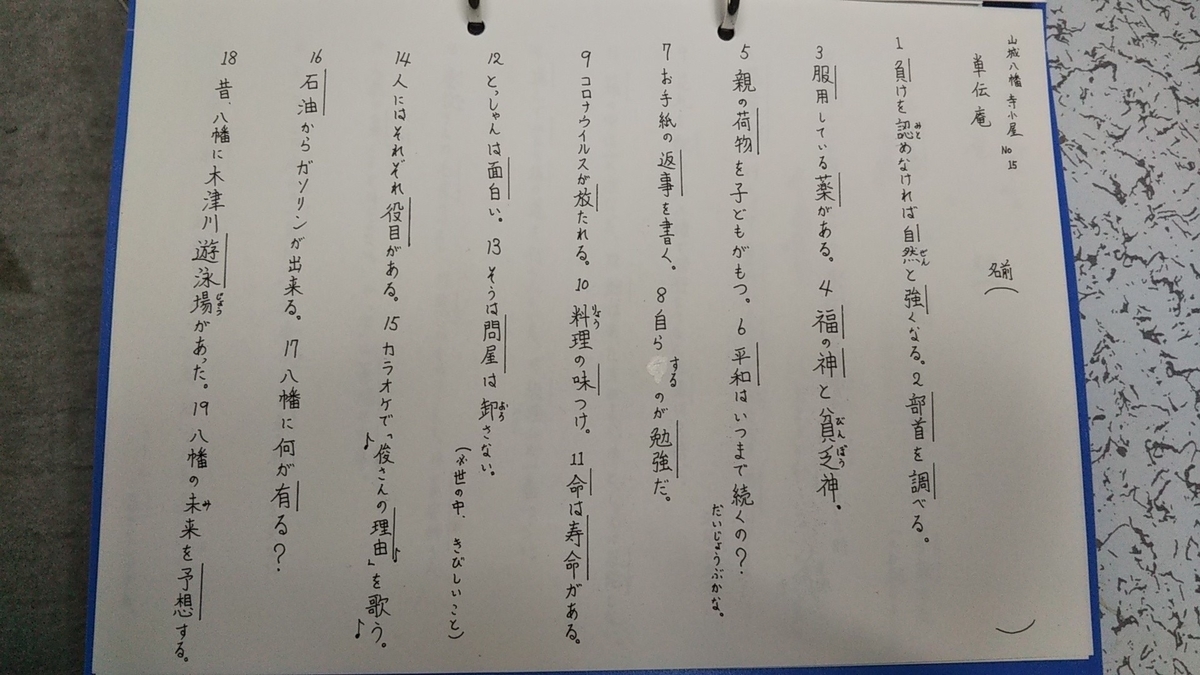 山城八幡 寺小屋 No 15
単伝庵
名前( )
1 負けを認めなければ自然と強くなる。2 部首を調べる。
みと
ぜん
3 服用している薬がある。 4 福の神と貧乏神。
びんぼう
5 親の荷物を子どもがもつ。6 平和はいつまで続くの?
だいじょうぶかな。
7 お手紙の返事を書く。 8 自らするのが勉強だ。
9 コロナウイルスが放たれる。10 料理の味つけ。 11 命は寿命がある。
りょう
12 とっしゃんは面白い。 13 そうは問屋は卸さない。
おろ
(※世の中、きびしいこと)
14 人にはそれぞれ役目がある。 15 カラオケで「俊さんの理由」を歌う。
♪ ♪ ♪
16 石油からガソリンが出来る。 17 八幡に何が有る?
18 昔、八幡に木津川遊泳場があった。19 八幡の未来を予想する。
じょう
み